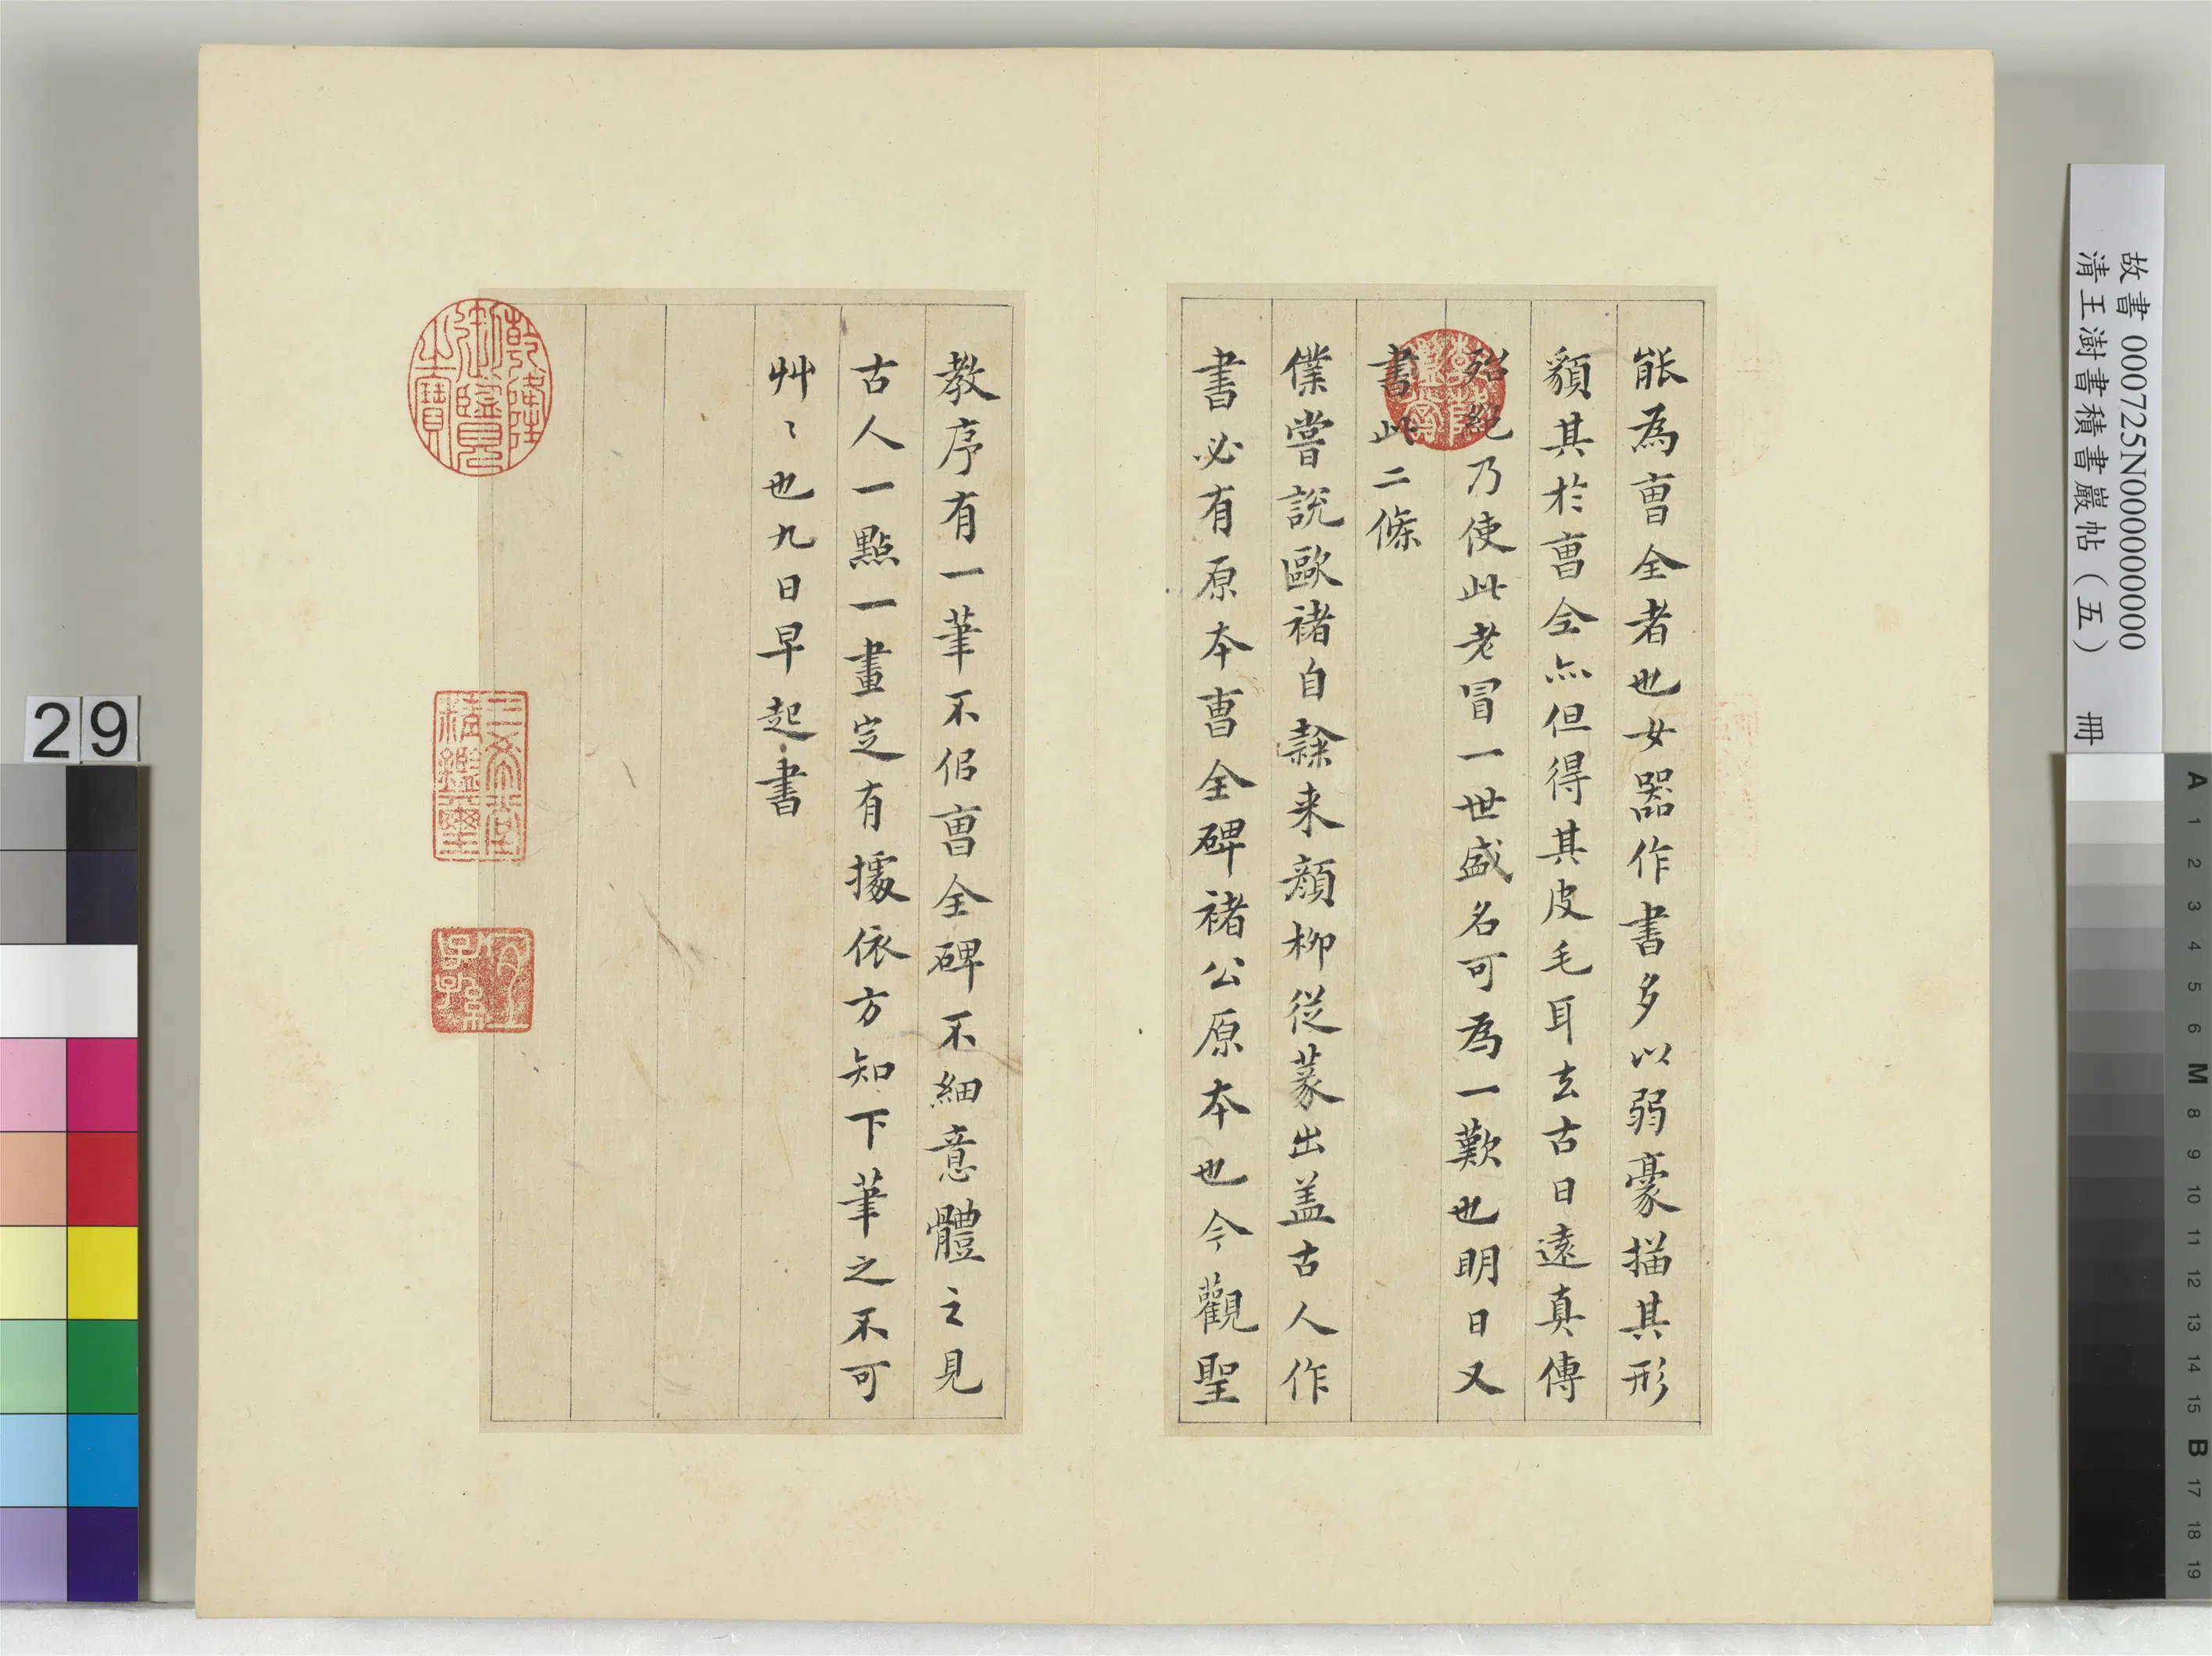 能為曺全者也女器作書多以弱豪描其形
貌其於曺全亦但得其皮毛耳去古日遠真傳
殆絕乃使此老冒一世盛名可為一歎也明日又
書此二條
僕嘗說歐褚自隸来顏柳從篆出盖古人作
書必有原本曺全碑褚公原本也今觀聖
教序有一筆不侣曺全碑不細意體之見
古人一點一畫定有據依方知下筆之不可
艸〻也九日早起書
乾隆御覽之寶
三希堂精鑑璽
宜子孫
故書000725N000000000
清王澍書積書巖帖(五) 冊
29
A 1 2 3 4 5 6 M 8 9 10 11 12 13 14 15 B 17 18 19